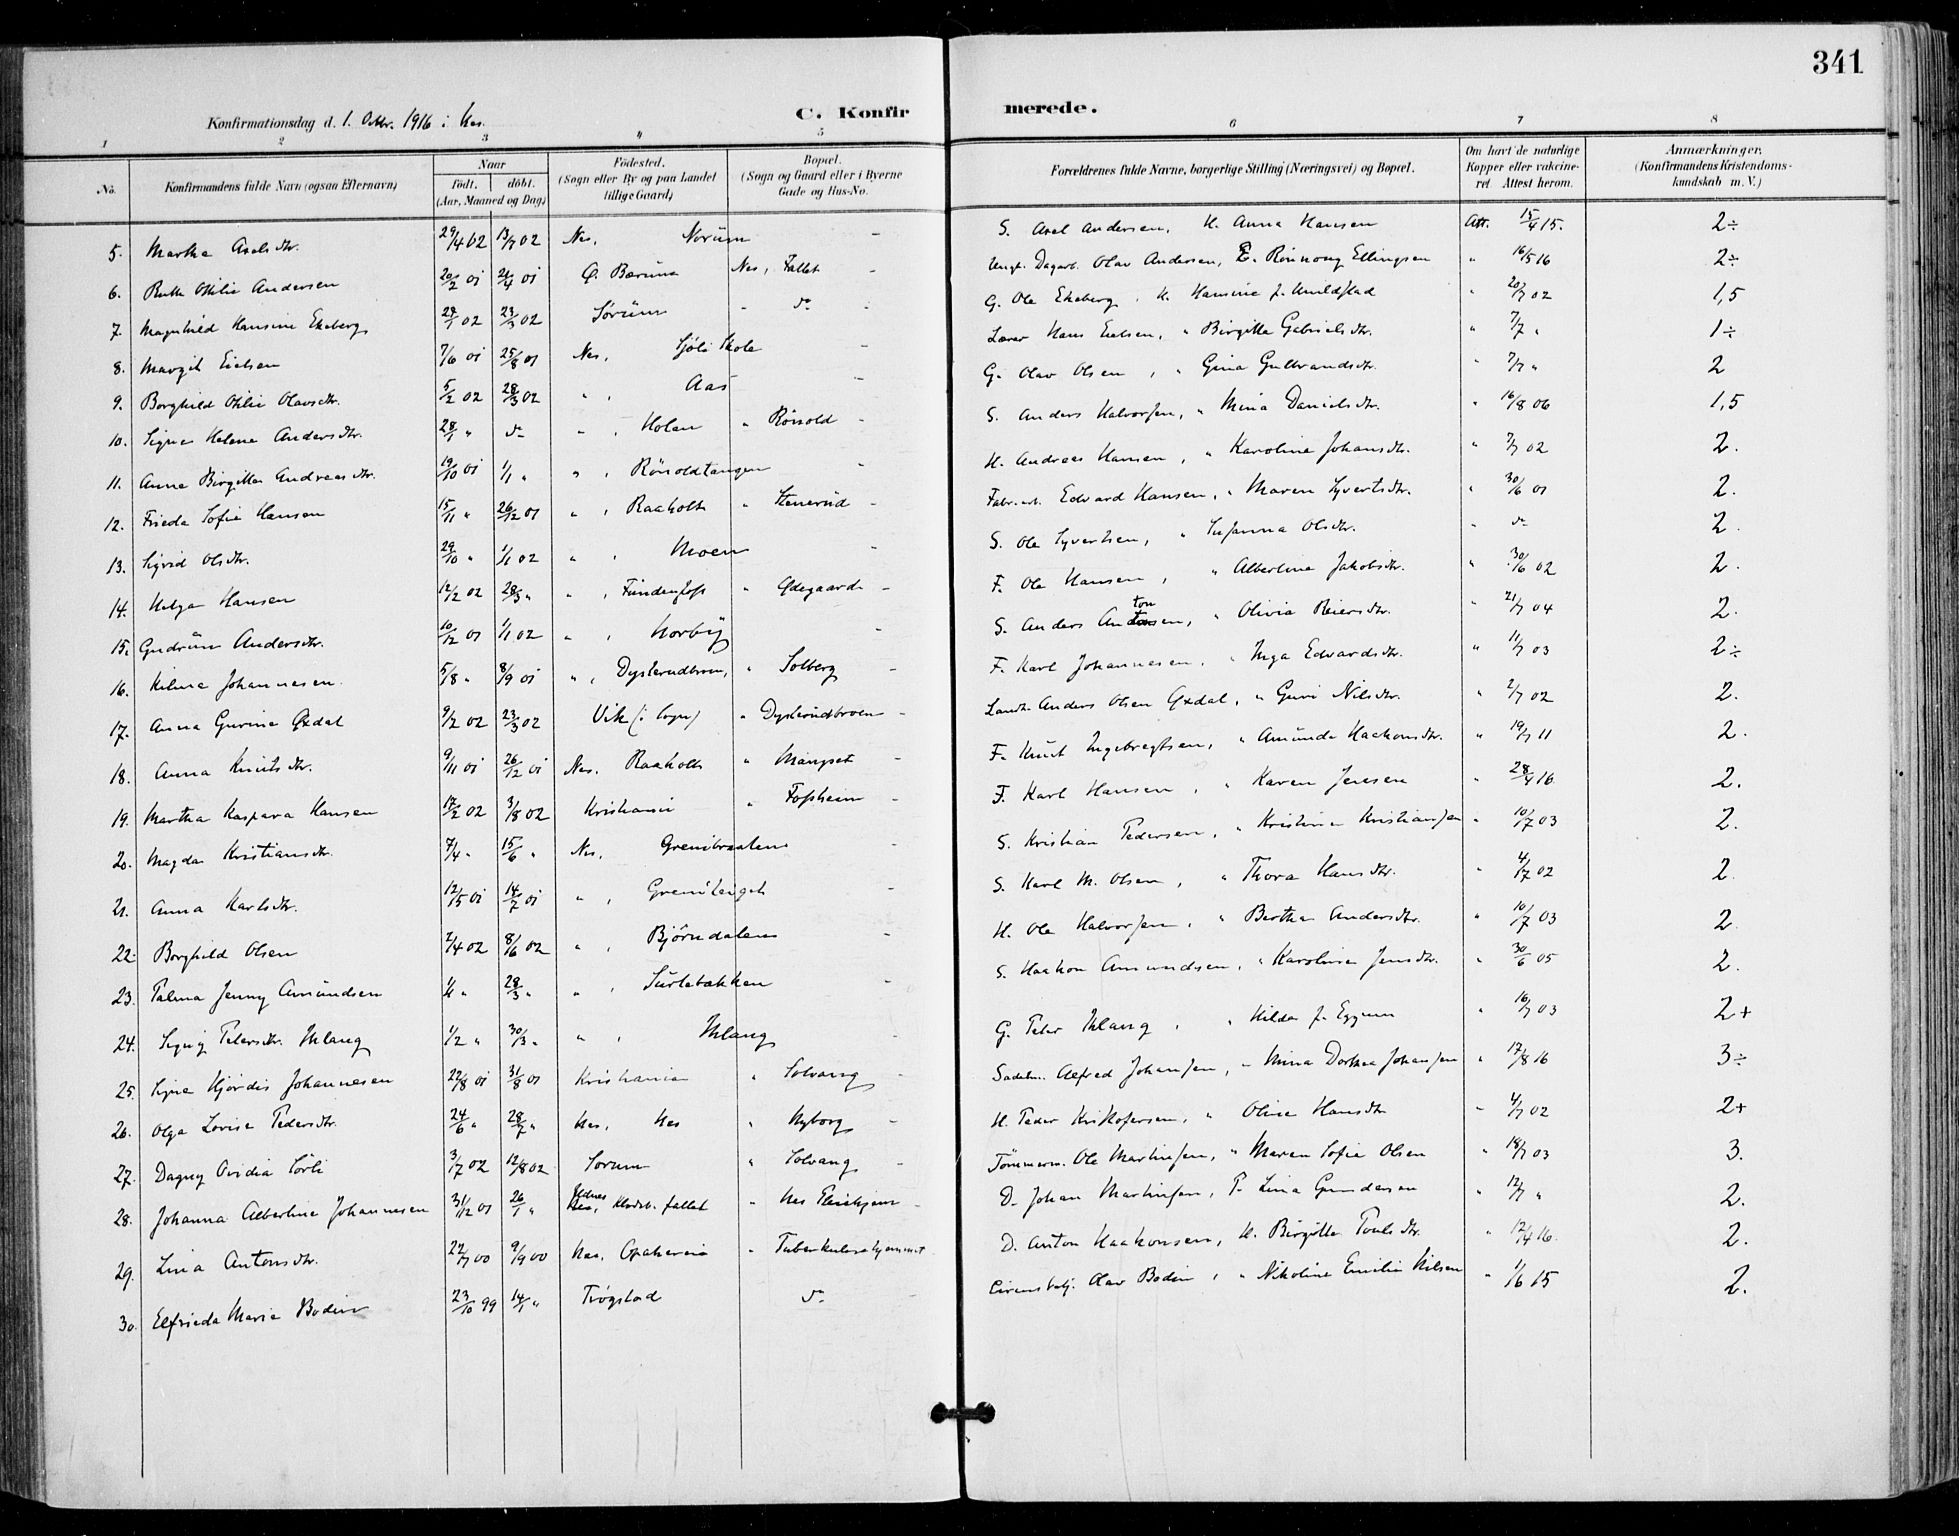 341
Konfirmationsdag d. 1. Oktbr. 1916 i Nes.
C. Konfirmerede.
1 2 3 4 5 6 7 8
No.
Konfirmandens fulde Navn (ogsaa Efternavn)
Naar
födt. döbt.
(Aar, Maaned og Dag)
Födested.
(Sogn eller By og paa Landet tillige Gaard)
Bopæl.
(Sogn og Gaard eller i Byerne Gade og Hus-No.
Forældrenes fulde Navne, borgerlige Stilling (Næringsvei) og Bopæl.
Om havt de naturlige Kopper eller vakcineret. Attest herom.
Anmærkninger.
(Konfirmandens Kristendomskundskab m. V.)
5. Martha Axelsdtr. 29/4 02 13/7 02 Nes, Norum - S. Axel Andersen, H. Anna Hansen Att. 15/4 15. 2÷
6. Ruth Otilie Andersen 20/2 01 21/4 01 Ø. Bærum Nes, Fallet - Ungk. Dagarb. Olav Andersen, E. Rönnoug Ellingsen " 16/5 16 2÷
7. Magnhild Hansine Ekeberg 29/1 02 23/3 02 Sørum - do - G. Ole Ekeberg, H. Hansine f. Huldstad " 20/7 02 1,5
8. Margit Eielsen 7/6 01 25/8 01 Nes, Sjöli Skole - Lærer Hans Eielsen, " Birgitte Gabrielsdtr. " 7/7 " 1÷
9. Borghild Otilie Olavsdtr. 5/2 02 28/3 02 " , Aas - G. Olav Olsen, " Gina Gulbrandsdtr. " 7/7 " 2
10. Signe Helene Andersdtr. 28/1 " do " , Holen " Rönold - S. Anders Halvorsen, " Mina Danielsdtr. " 16/8 06 1,5
11. Anna Birgitte Andreasdtr. 19/10 01 1/1 " " , Rönoldtangen - H. Andreas Hansen, " Karoline Johansdtr. " 7/7 02 2.
12. Frieda Sofie Hansen 15/11 " 26/12 01 " , Raaholt " Stenerud - Fabr.arb. Edvard Hansen, " Maren Syvertsdtr. " 30/6 01 2.
13. Sigrid Olsdtr. 29/10 " 1/1 02 " , Moen - S. Ole Syvertsen, " Susanna Olsdtr. " do 2.
14. Helga Hansen 12/2 02 28/3 " " , Fundenfoss " Ødegaard - F. Ole Hansen, " Albertine Jakobsdtr. " 30/6 02 2.
15. Gudrun Andersdtr. 10/12 01 1/1 02 " , Horby - S. Anders Antonsen, " Olivia Reiersdtr. " 21/7 04 2.
16. Hilma Johannesen 5/8 " 8/9 01 " , Dysterudbroen, " Solberg - F. Karl Johannesen, " Inga Edvardsdtr. " 11/7 03 2÷
17. Anna Gurine Øxdal 9/2 02 23/3 02 Vik (i Sogn) " Dysterudbroen - Landh. Anders Olsen Øxdal, " Guri Nilsdtr. " 2/7 02 2.
18. Anna Knutsdtr. 9/11 01 26/12 01 Nes, Raaholt " Mangset - F. Knut Ingebregtsen, " Amunda Haakonsdtr. " 19/7 11 2.
19. Martha Kaspara Hansen 17/2 02 3/8 02 Kristiania " Fosheim - F. Karl Hansen, " Karen Jensen " 28/4 16 2.
20. Magda Kristiansdtr. 7/4 " 15/6 " Nes, Grenibraaten - S. Kristian Pedersen, " Kristine Kristiansen " 10/7 03 2.
21. Anna Karlsdtr. 12/5 01 14/7 01 " , - S. Karl M. Olsen, " Thora Hansdtr. " 4/7 02 2.
22. Borghild Olsen 2/4 02 8/6 02 " , Björndalen - H. Ole Halvorsen, " Berthe Andersdtr. " 10/7 03 2
23. Palma Jenny Amundsen " 28/3 " " , Surlebækken - S. Haakon Amundsen, " Karoline Jensdtr. " 30/6 05 2.
24. Signy Petersdtr. Ihlang 1/2 " 30/3 " " , Ihlang - G. Peter Ihlang, " Hilda f. Eggum " 16/7 03 2+
25. Signe Hjördis Johannesen 22/8 01 31/8 01 Kristiania " Solvang - Sadelm. Alfred Johansen, " Mina Dorthea Johansen " 17/8 16 3÷
26. Olga Lovise Pedersdtr. 24/6 " 28/7 " Nes, Nes " Nyborg - H. Peder Kristofersen, " Oline Hansdtr " 4/7 02 2+
27. Dagny Ovidia Sörli 3/7 02 12/8 02 Sorum " Solvang - Tömmerm. Ole Martinsen, " Maren Sofie Olsen " 18/7 03 3.
28. Johanna Albertine Johannesen 31/12 01 26/1 " Nes, fallet " Nes Pleiehjem - D. Johan Martinsen, P. Lina Gundersen " 12/7 " 2.
29. Lina Antonsdtr. 22/7 00 9/9 00 Nes. " Tuberkulosehjemmet D. Anton Haakonsen, H. Birgitte Paulsdtr. " 12/4 16. 2.
30. Elfrieda Marie Bodin 23/10 99 14/1 " Trøgstad do - Olav Bodin, " Nikoline Emilie Nilsen " 1/6 15 2.